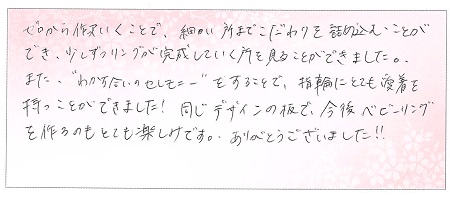 ゼロから作っていくことで、細かい所までこだわりを詰め込むことが
でき、少しずつリングが完成していく所を見ることができました。
また、"わかち合いのセレモニー"をすることで、指輪にとても愛着を
持つことができました! 同じデザインの板で、今後ベビーリング
を作るのもとても楽しみです。ありがとうございました!!